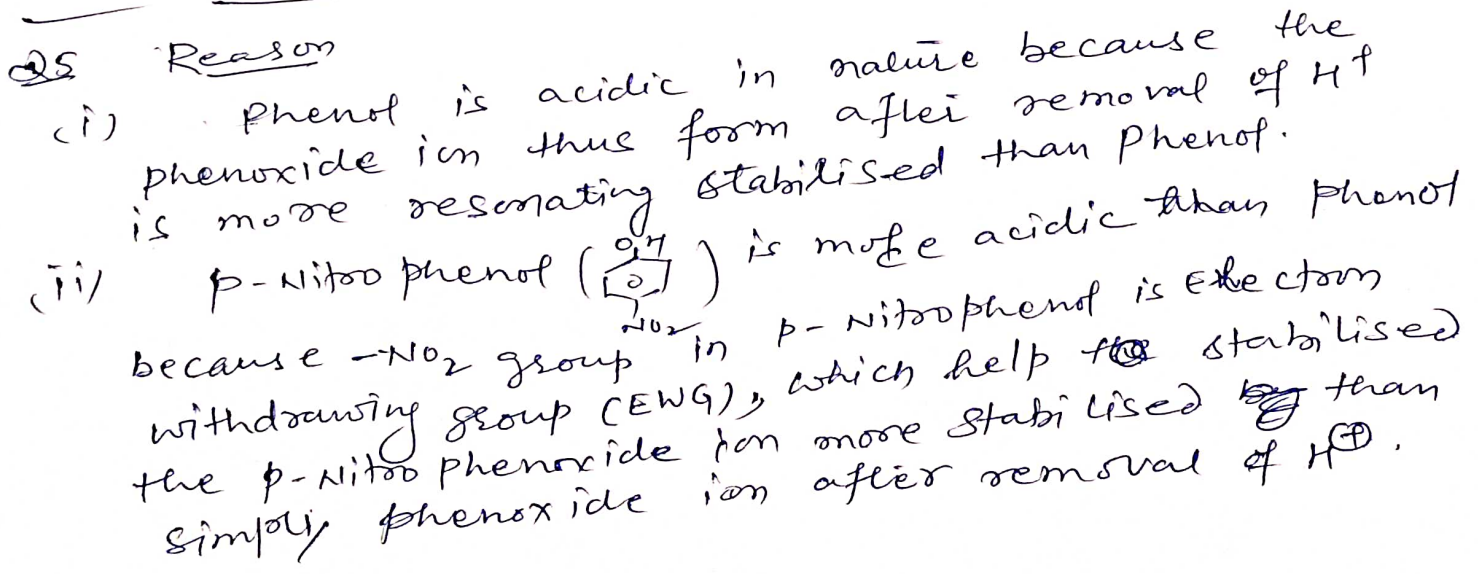 Q5 Reason
(i) Phenol is acidic in nature because the
phenoxide ion thus form after removal of H+
is more resonating stabilised than Phenol.
(ii) p-Nitro phenol ( OH NO2 ) is more acidic than phenol
because -NO2 group in p-Nitrophenol is Electron
withdrawing group (EWG), which help to stabilised
the p-Nitro phenoxide ion more stabilised than
simply phenoxide ion after removal of H⊕.